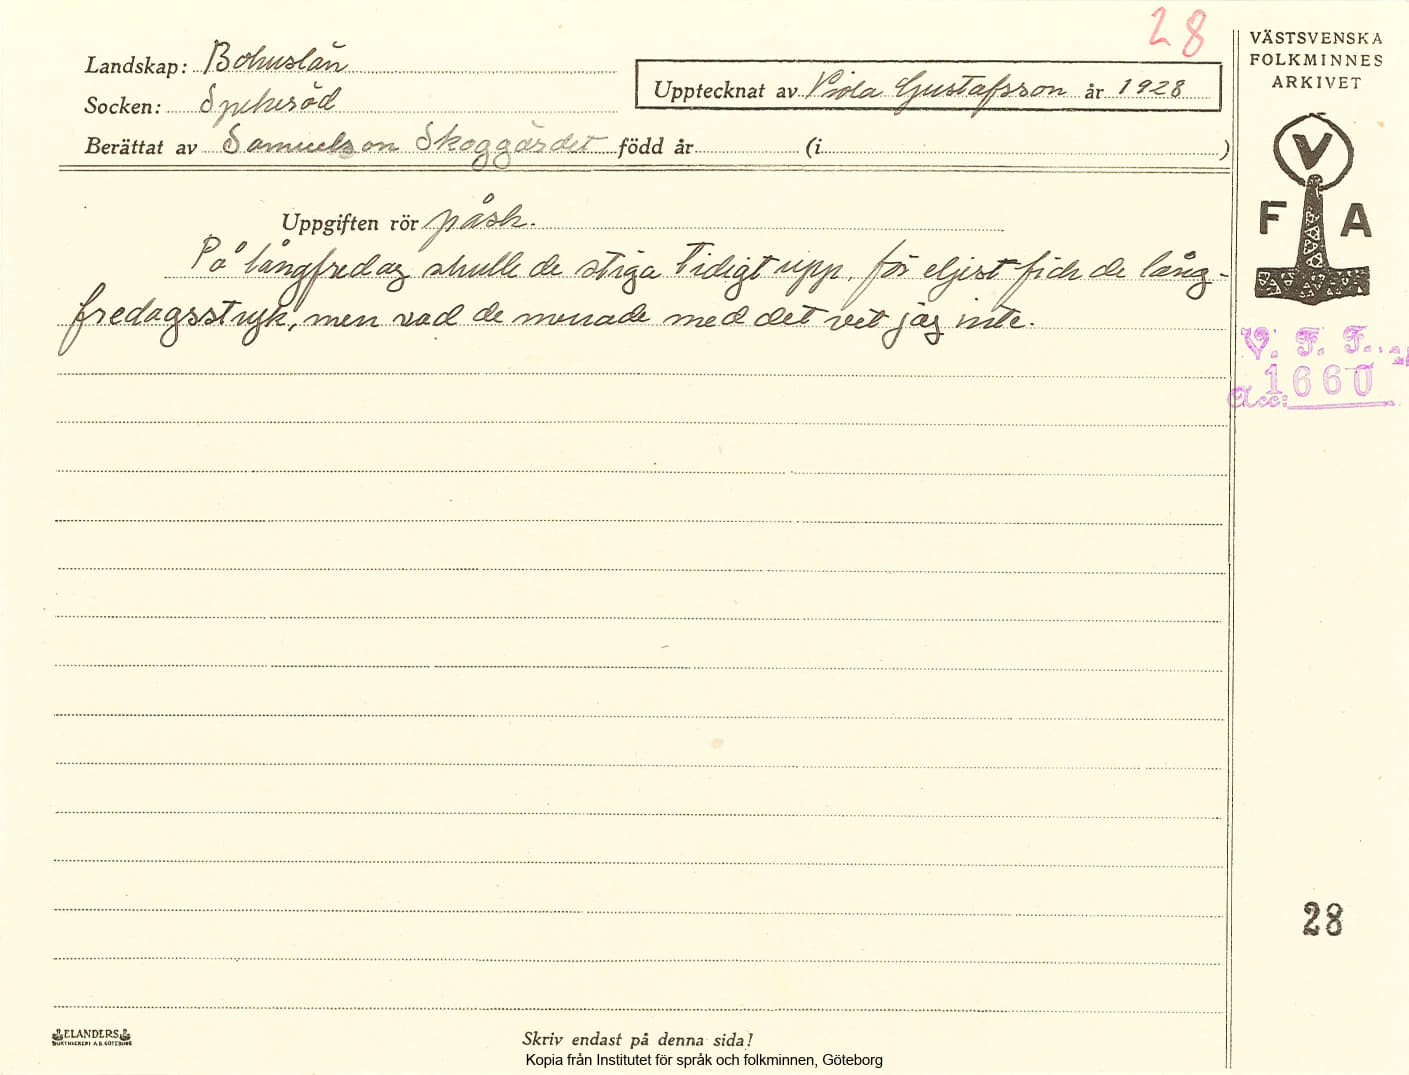 28
Landskap: Bohuslän
Socken: Spekeröd
Upptecknat av Viola Gustafsson år 1928
Berättat av Samuelsson Skoggärdet född år (i )
Uppgiften rör påsk.
På långfredag skulle de stiga tidigt upp, för eljest fick de lång-
fredagsstryk, men vad de menade med det vet jag inte.
VÄSTSVENSKA
FOLKMINNES
ARKIVET
V
F A
V. F. F.
Acc: 1660
28
ELANDERS
BOKTRYCKERI A.B. GÖTEBORG
Skriv endast på denna sida!
Kopia från Institutet för språk och folkminnen, Göteborg